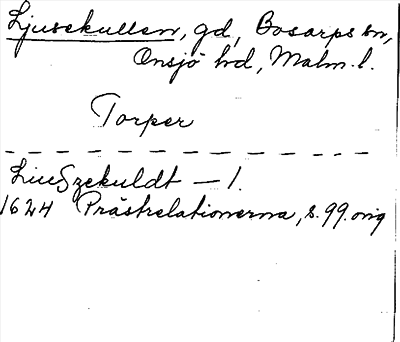 Ljusekullen, gd, Bosarps sn,
Onsjö hd, Malm. l.
Torper
LiuSzekuldt — 1.
1624 Prästrelationerna, s. 99. orig